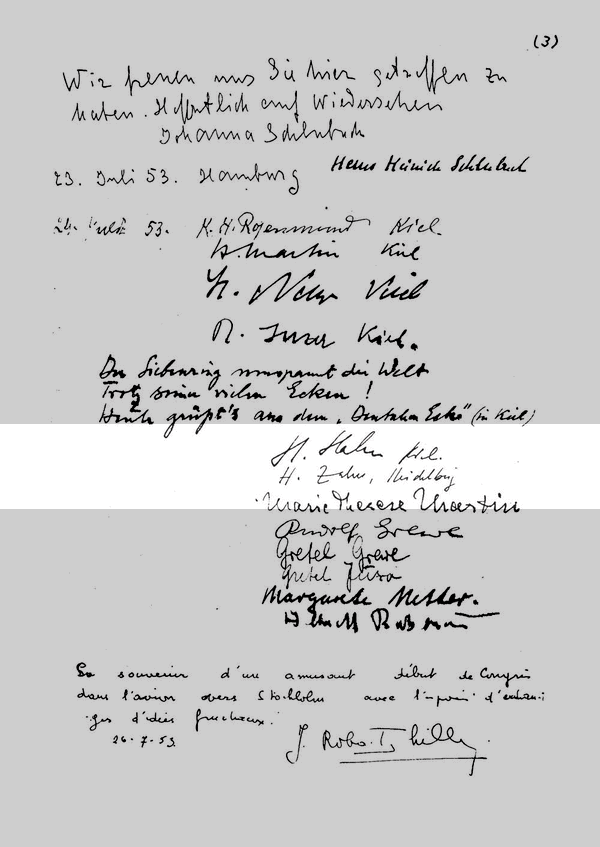 (3)
Wir freuen uns Sie hier getroffen zu
haben. Hoffentlich auf Wiedersehen
Johanna Schlubach
Hans Heinrich Schlubach
23. Juli 53. Hamburg
24. Juli 53. K. H. Kiel.
H. Martin Kiel
H. Kiel
R. Kiel.
Der Siebenring umspannt die Welt
Trotz seiner vielen Ecken!
Heute grüßt's aus dem „Deutschen Eck" (in Kiel)
H. Hahn Kiel.
H. Zahn, Heidelberg
Marie Therese Martin
Rudolf Grewe
Gretel Grewe
Gretel
Margarete
souvenir d'un amusant début de Congrès
dans l'avion vers Stockholm avec l'espoir d'échan-
ges d'idées
26-7-53
J.